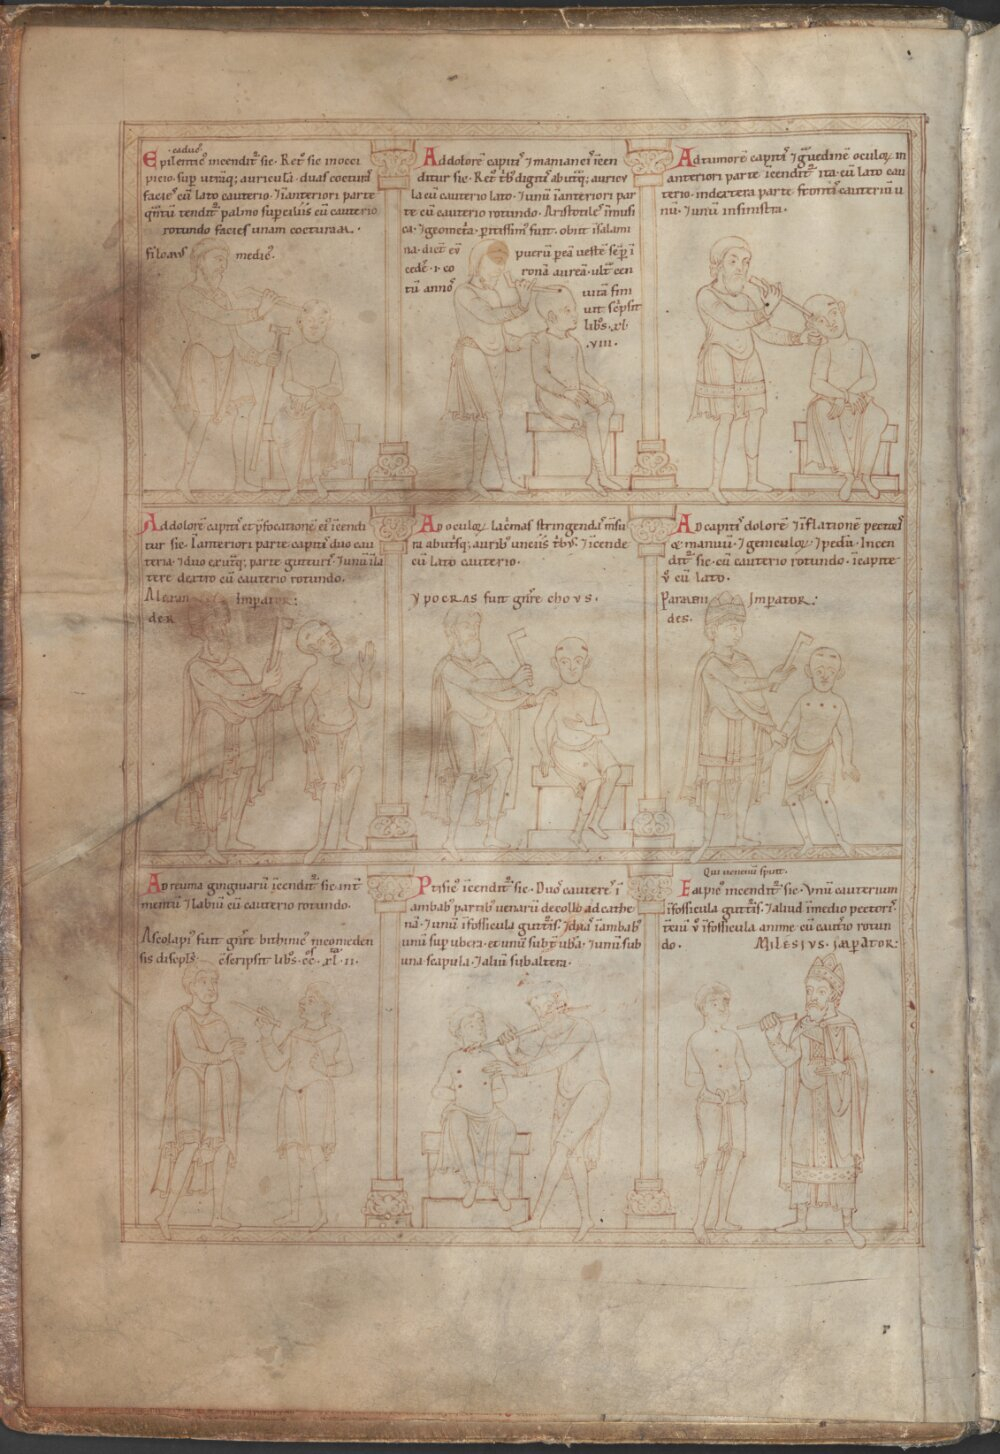 ·caduc᷒·
Epilentic᷒ incendit᷑ sic. Retᷣ sic inocci
picio. sup utrāq; auriculā. duas cocturas
facies cū lato cauterio. ⁊ īanteriori parte
qntū tendit᷑ palmo supciliis cū cauterio
rotundo facies unam cocturam.·
filoaus medic᷒.
Addolorē capitis ⁊ maniam ei īcen
ditur sic. Retᷣ trib᷒ digitis abutq; auricu
la cū cauterio lato. ⁊ unū īanteriori par
te cū cauterio rotundo. Aristotiles īmusi
ca. ⁊ geometᵃ. pitissim᷒ fuit. obiit īsalami
na. dicit eū puerū
cedē. ronā aureā. ultᵃ cen
tū annos uitā fini
uit scpsit
lib᷒s. xl.
.viii.
Adtumorē capitis ⁊ gᵃuedinē oculoꝝ in
anteriori parte īcendit᷑ ita cū lato cau
terio. indextera parte frontis cauteriū u
nū. ⁊ unū insinistra.
Addolorē capitis et p̄focationē ei᷒ īcendi
tur sic. īanteriori parte capitis duo cau
teria. ⁊ duo exutq; parte gutturis. ⁊ unū īla
tere dextro cū cauterio rotundo.
Alexan Imperator:
der
Ad oculoꝝ lacrimas stringendas msu
ra abutsq; aurib᷒ unciis trib᷒. ⁊ īcende
cū lato cauterio.
ypocras fuit genere chous.
Ad capitis dolorē ⁊ īflationē pectoris
& manuū. ⁊ geniculoꝝ ⁊ pedū. Incen
dit᷑ sic. cū cauterio rotundo. īcapite
v̄ cū lato.
Imperator:
des.
Ad reuma gingiuarū īcendit᷑ sic. in
mentū ⁊ labiū cū cauterio rotundo.
Ascolapi᷒ fuit genere bithinic᷒ nicomeden
sis discipls cscripsit lib᷒s. .ii.
Ptisic᷒ īcendit᷑ sic. Duos cauteres ī
ambab᷒ partib᷒ uenarū decollo ad cathe
nā. ⁊ unū īfossicula gutturis. ⁊ īambab᷒
unū sup ubera. et unū subtᵘ ubᵃ. ⁊ unū sub
una scapula. ⁊ aliū sub altera.
Qui uenenū sput.
Empic᷒ incendit᷑ sic. Vnū cauterium
īfossicula gutturis. ⁊ aliud īmedio pectoris.
v̄ īfossicula anime cū cautio rotun
do. Milesius. Imperator:
r